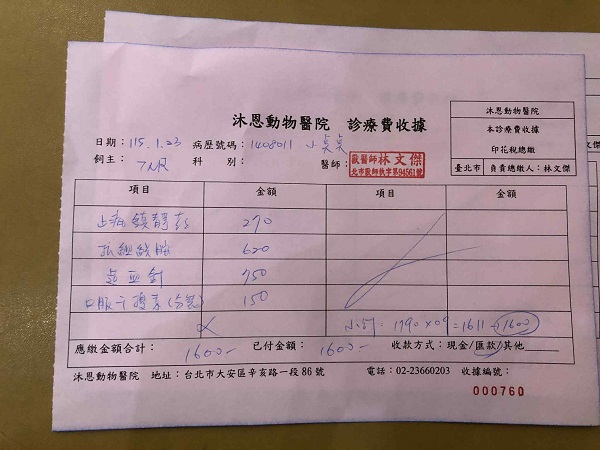 沐恩動物醫院 診療費收據
沐恩動物醫院
本診療費收據
印花稅總繳
臺北市 負責總繳人：林文傑
日期：115.1.23 病歷號碼：1408011 小
飼主： 科 別： 醫師：獸醫師林文傑
北市獸師執字第94561號
項目 金額 項目 金額
止痛鎮靜 270
620
針 750
口服 150
小計：1790×0.9=1611→1600
應繳金額合計：1600- 已付金額：1600- 收款方式：現金/匯款/其他
沐恩動物醫院 地址：台北市大安區辛亥路一段86號 電話：02-23660203 收據編號：
000760